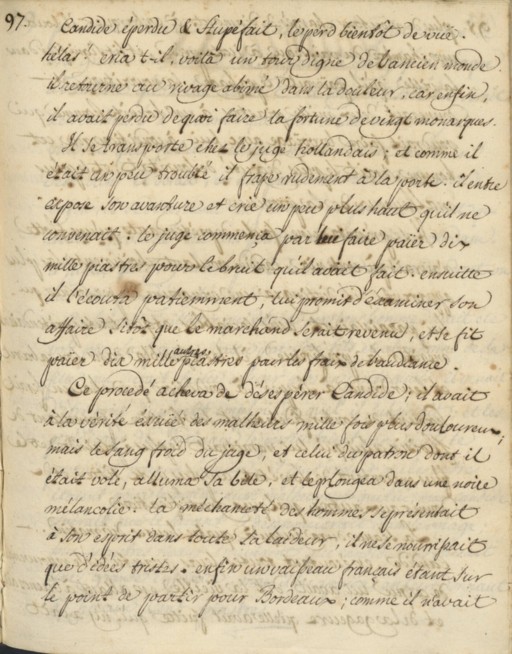 97.
Candide éperdu & stupéfait, le perd bientôt de vüe.
hélas! cria t-il, voila un tour digne de l'ancien monde.
il retourne au rivage abimé dans la douleur, car enfin,
il avait perdu de quoi faire la fortune de vingt monarques.
Il se transporte chez le juge hollandais; et comme il
était un peu troublé il frape rudement à la porte. il entre
expose son avanture et crie un peu plus haut qu'il ne
convenait. le juge commença par lui faire païer dix
mille piastres pour le bruit qu'il avait fait. ensuitte
il l'écouta patiemment, lui promit d'examiner son
affaire sitôt que le marchand serait revenu, et se fit
païer dix mille autres piastres pour les frais de l'audiance.
Ce procedé acheva de désespérer Candide; il avait
à la vérité essuïé des malheurs mille fois plus douloureux;
mais le sang froid du juge, et celui du patron dont il
était volé, alluma sa bile, et le plongea dans une noire
mélancolie. la méchanceté des hommes se présentait
à son esprit dans toute sa laideur, il ne se nourissait
que d'idées tristes. enfin un vaisseau français étant sur
le point de partir pour Bordeaux; comme il n'avait